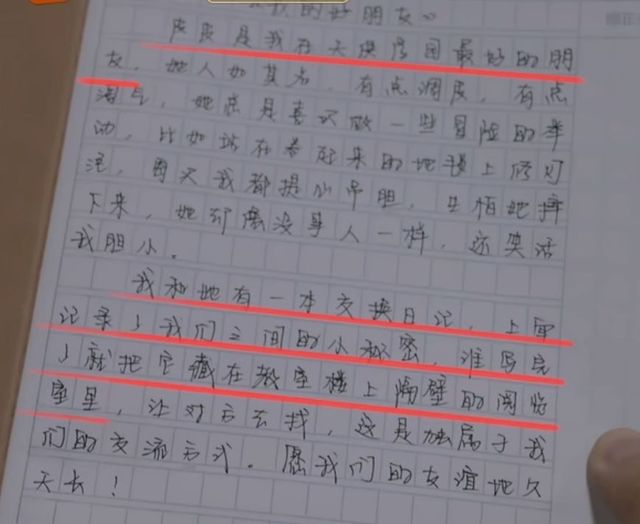 我的好朋友
皮皮是我在天使序园最好的朋
友，她人如其名，有点调皮，有点
淘气，她总是喜欢做一些冒险的举
动，比如站在卷起来的地毯上修灯
泡，每次我都提心吊胆，生怕她摔
下来，她却像没事人一样，还笑话
我胆小。
我和她有一本交换日记，上面
记录了我们之间的小秘密，谁写完
了就把它藏在教室楼上隔壁的阅览
室里，让对方去找，这是独属于我
们的交流方式。愿我们的友谊地久
天长！